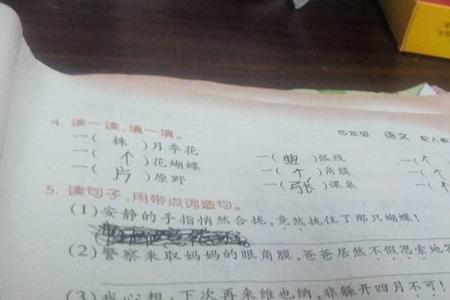 四年级 语文 配人教
4. 读一读,填一填。
一( 株 )月季花
一( 个 )花蝴蝶 一( )弧线 一( 个
一( 片 )原野 一( 个 )角膜 一(
一( 张 )课桌 一(
5. 读句子,用带点词造句。
(1)安静的手指悄然合拢,竟然拢住了那只蝴蝶!
(2)警察来取妈妈的眼角膜,爸爸居然不假思索地答
(3)我心想,下次再来维也纳,非躲开四月不可!